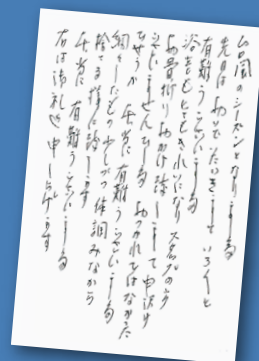 台風のシーズンとなりました
先日は おいでいただきまして いろいろと
有難うございました
も とてもきれいになり
お骨折りおかけ致しまして 申訳け
ございませんでした おつかれではなかった
でせうか 本当に有難うございました
少しづつ 体調みながら
捨てる様に致します
本当に 有難うございました
右は御礼迄申し上げます